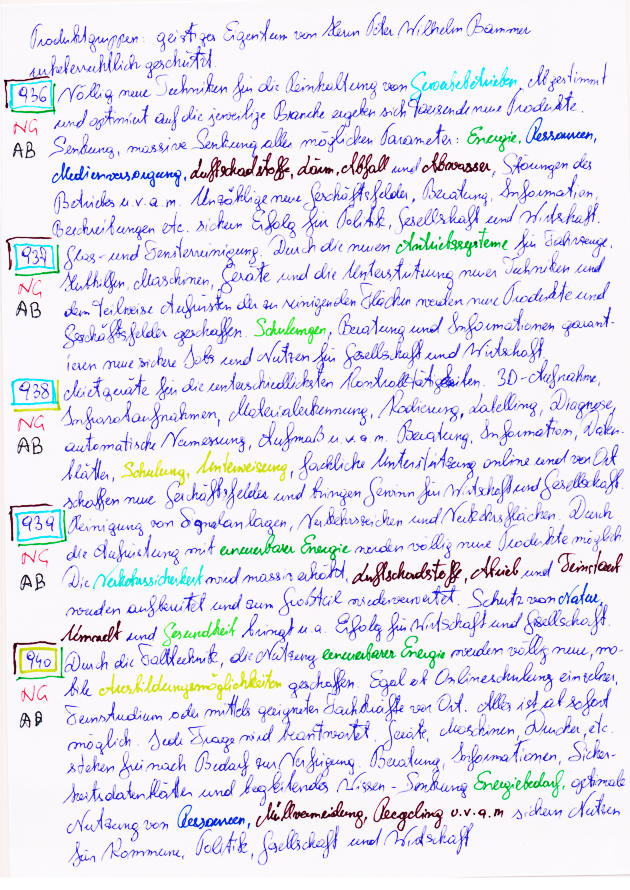 Produktgruppen: geistiges Eigentum von Herrn Peter Wilhelm Bammer
urheberrechtlich geschützt
936 Völlig neue Techniken für die Reinhaltung von Gewerbebetrieben. Abgestimmt
NG und optimiert auf die jeweilige Branche ergeben sich tausende neue Produkte.
AB Senkung, massive Senkung aller möglichen Parameter: Energie, Ressourcen,
Medienversorgung, Luftschadstoffe, Lärm, Abfall und Abwasser, Störungen des
Betriebes u.v.a.m. Unzählige neue Geschäftsfelder, Beratung, Information,
Beschreibungen etc. sichern Erfolg für Politik, Gesellschaft und Wirtschaft.
937 Glas- und Fensterreinigung. Durch die neuen Antriebssysteme für Fahrzeuge,
NG Maschinen, Geräte und die Unterstützung neuer Techniken und
AB dem teilweise Aufrüsten der zu reinigenden Flächen werden neue Produkte und
Geschäftsfelder geschaffen. Schulungen, Beratung und Informationen garant-
ieren neue sichere Jobs und Nutzen für Gesellschaft und Wirtschaft
938 Mietgeräte für die unterschiedlichsten Kontrolltätigkeiten. 3D-Aufnahme,
NG Infrarotaufnahmen, Materialerkennung, Kodierung, Labelling, Diagnose,
AB automatische Vermessung, Aufmaß u.v.a.m. Beratung, Information, Daten-
blätter, Schulung, Unterweisung, fachliche Unterstützung online und vor Ort
schaffen neue Geschäftsfelder und bringen Gewinn für Wirtschaft und Gesellschaft.
939 Reinigung von Signalanlagen, Verkehrszeichen und Verkehrsflächen. Durch
NG die Aufrüstung mit erneuerbarer Energie werden völlig neue Produkte möglich.
AB Die Verkehrssicherheit wird massiv erhöht, Luftschadstoffe, Abrieb und Feinstaub
werden aufbereitet und zum Großteil wiederverwertet. Schutz von Natur,
Umwelt und Gesundheit bringt u.a. Erfolg für Wirtschaft und Gesellschaft.
940 Durch die Falttechnik, die Nutzung erneuerbarer Energie werden völlig neue, mo-
NG bile Ausbildungsmöglichkeiten geschaffen. Egal ob Onlineschulung einzelner,
AB Fernstudium oder mittels geeigneter Fachkräfte vor Ort. Alles ist ab sofort
möglich. Jede Frage wird beantwortet. Geräte, Maschinen, Drucker, etc.
stehen frei nach Bedarf zur Verfügung. Beratung, Informationen, Sicher-
heitsdatenblätter und begleitendes Wissen - Senkung Energiebedarf, optimale
Nutzung von Ressourcen, Müllvermeidung, Recycling u.v.a.m sichern Nutzen
für Kommune, Politik, Gesellschaft und Wirtschaft